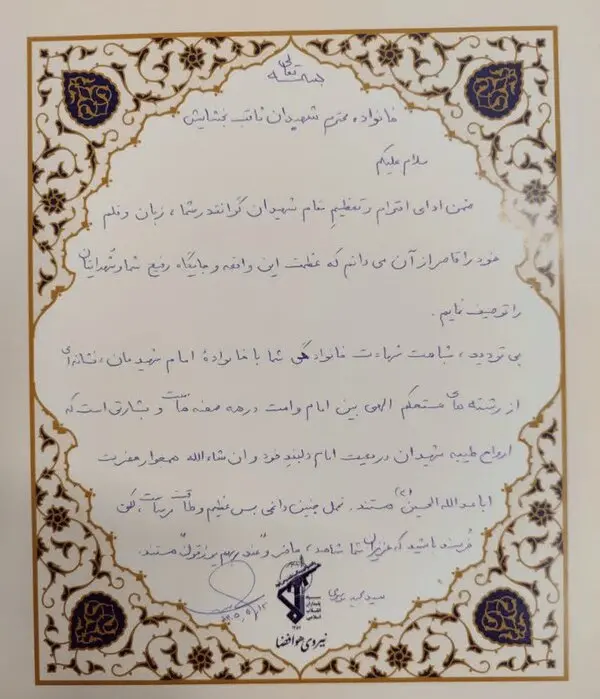 بسمه تعالی
خانواده محترم شهیدان ثاقب بخشایش
سلام علیکم
ضمن ادای احترام و تعظیم مقام شهیدان گرانقدر شما، زبان و قلم
خود را قاصر از آن می دانم که عظمت این واقعه و جایگاه رفیع شما و شهدایتان
را توصیف نمایم.
بی تردید، شباهت شهادت خانوادگی شما با خانوادهٔ امام شهیدمان، نشانه ای
از رشته های مستحکم الهی بین امام و امت در همه صحنه هاست و بشارتی است که
ارواح طیبه شهیدان در معیت امام دلبند خود و ان شاءالله همجوار حضرت
اباعبدالله الحسین (ع) هستند. تحمل چنین داغی بس عظیم و طاقت فرساست، لکن
خرسند باشید که عزیزان شما شاهد، حاضر و "عند ربهم یرزقون" هستند.
سید مجید موسوی
سپاه
پاسداران
انقلاب
اسلامی
نیروی هوافضا